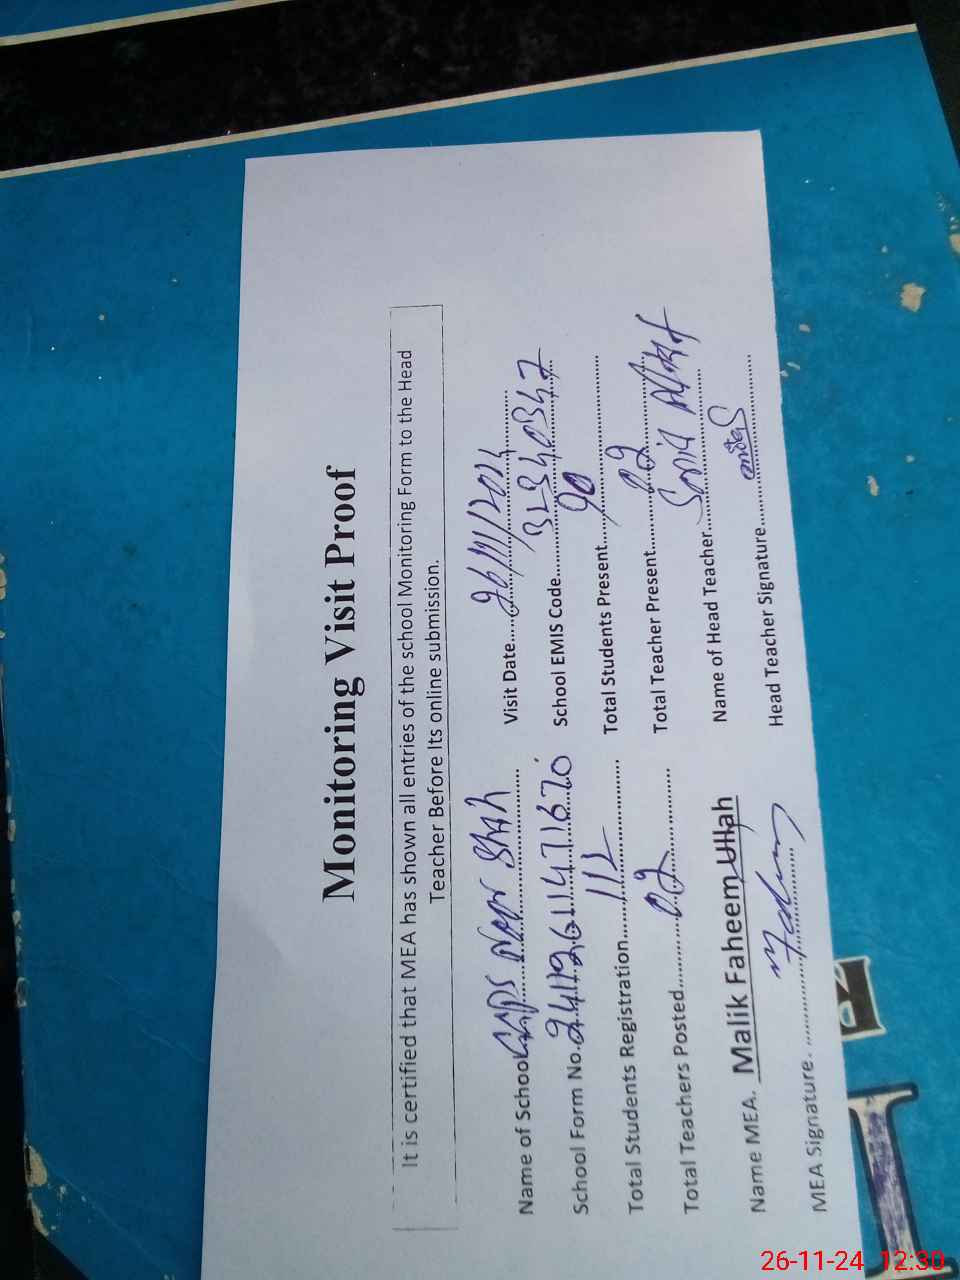 Monitoring Visit Proof
It is certified that MEA has shown all entries of the school Monitoring Form to the Head
Teacher Before Its online submission.
Name of School GGPS Noor Shah
Visit Date 26/11/2024
School Form No. 24112611471670
School EMIS Code
Total Students Registration 112
Total Students Present 90
Total Teachers Posted 02
Total Teacher Present 02
Name MEA. Malik Faheem Ullah
Name of Head Teacher Sonia
MEA Signature.
Head Teacher Signature
26-11-24 12:30